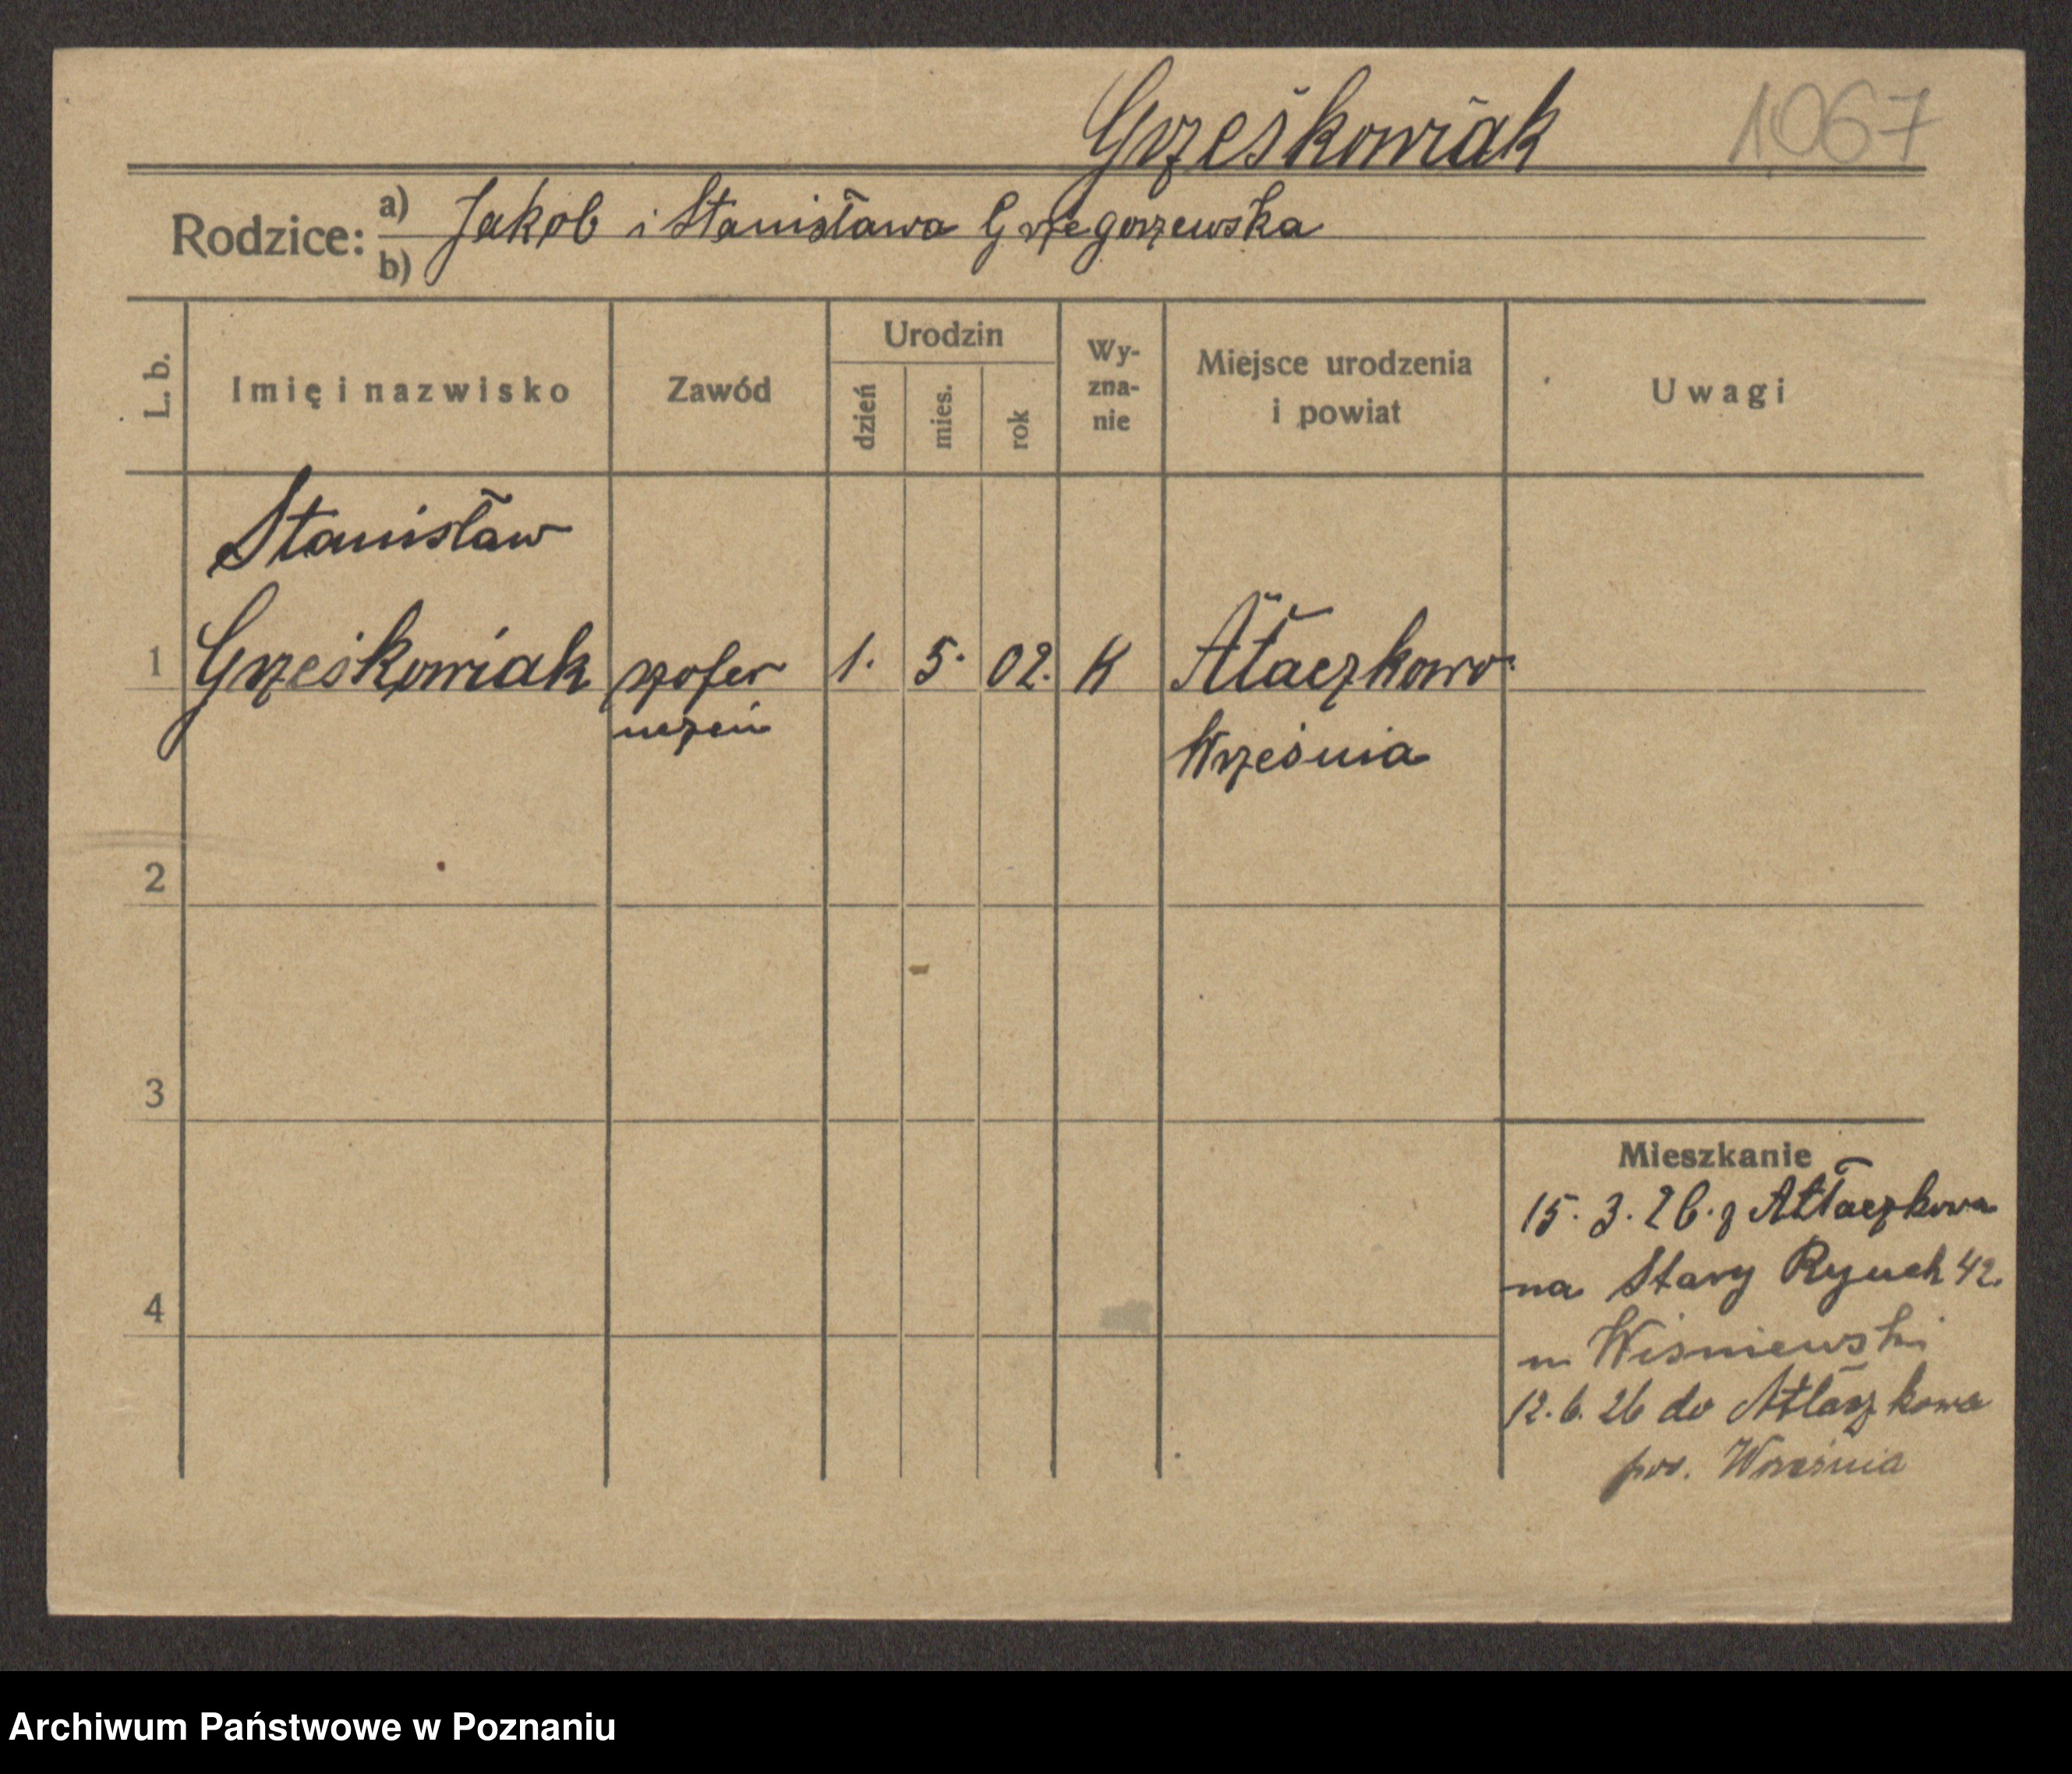 Grześkowiak 1067
Rodzice: a) Jakób i Stanisława Grzegorzewska
b)
L. b. Imię i nazwisko Zawód Urodzin dzień mies. rok Wy-zna-nie Miejsce urodzenia i powiat Uwagi
Stanisław
1 Grześkowiak szofer 1. 5. 02. K Atłaczkowo
uczeń Września
2
3
Mieszkanie
15. 3. 26. z Atłaczkowa
na Stary Rynek 42.
4
u Wiśniewski
12. 6. 26 do Atłaczkowa
pow. Września
Archiwum Państwowe w Poznaniu